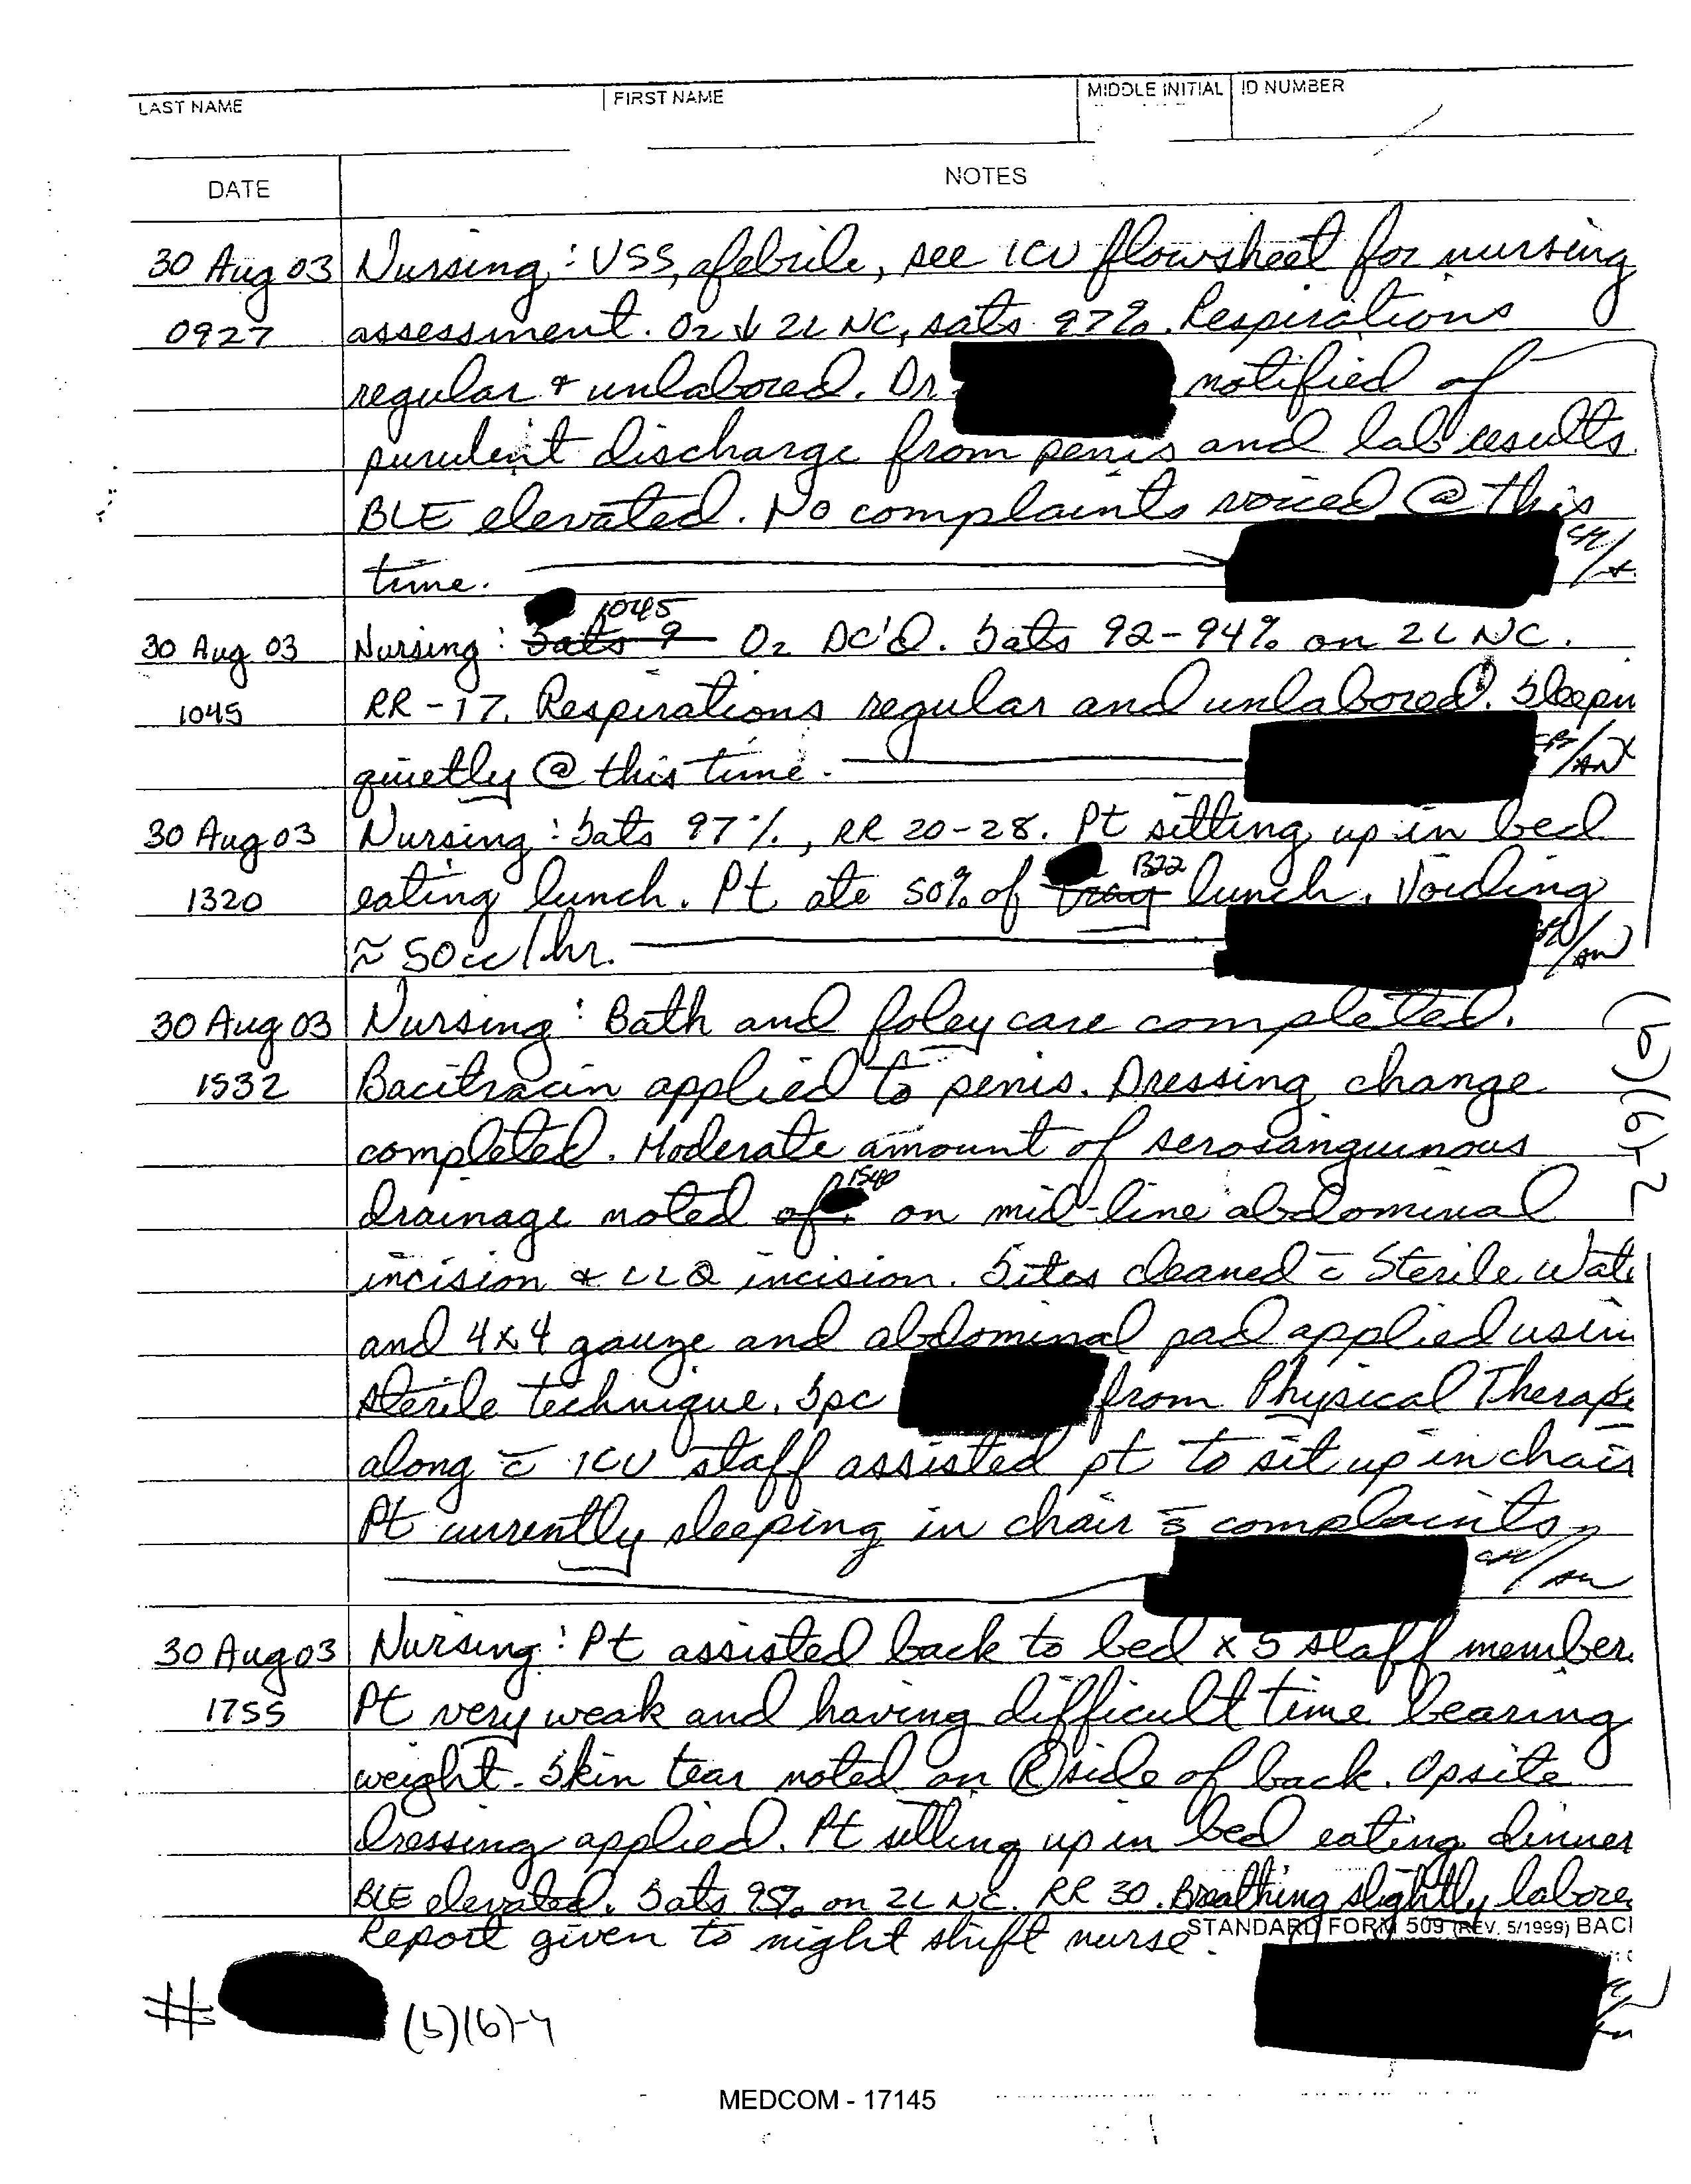 LAST NAME FIRST NAME MIDDLE INITIAL ID NUMBER
DATE NOTES
30 Aug 03 Nursing: VSS, afebrile, see ICU flowsheet for nursing
0927 assessment. O2 ↓ 2L NC, sats 97%. Respirations
regular & unlabored. Dr notified of
purulent discharge from penis and lab results.
BLE elevated. No complaints voiced @ this
time.
1045
30 Aug 03 Nursing: Sats 9 O2 DC'd. Sats 92-94% on 2L NC.
1045 RR-17. Respirations regular and unlabored. Sleepin
quietly @ this time. /AN
30 Aug 03 Nursing: Sats 97%, RR 20-28. Pt sitting up in bed
1322
1320 eating lunch. Pt ate 50% of tray lunch. Voiding
≈ 50cc/hr. /AN
30 Aug 03 Nursing: Bath and foley care completed.
1532 Bacitracin applied to penis. Dressing change
completed. Moderate amount of serosanguinous
1540
drainage noted of on mid-line abdominal
incision & LLQ incision. Sites cleaned c̄ Sterile Wate
and 4x4 gauze and abdominal pad applied usin
sterile technique. Spc from Physical Therap
along c̄ ICU staff assisted pt to sit up in chair
Pt currently sleeping in chair s̄ complaints.
/AN
30 Aug 03 Nursing: Pt assisted back to bed x 5 staff member
1755 Pt very weak and having difficult time bearing
weight. Skin tear noted on Ⓡ side of back. Opsite
dressing applied. Pt sitting up in bed eating dinner
BLE elevated. Sats 95% on 2L NC. RR 30. Breathing slightly labore
Report given to night shift nurse.
STANDARD FORM 509 (REV. 5/1999) BACK
(b)(6)-2
# (b)(6)-4
MEDCOM - 17145